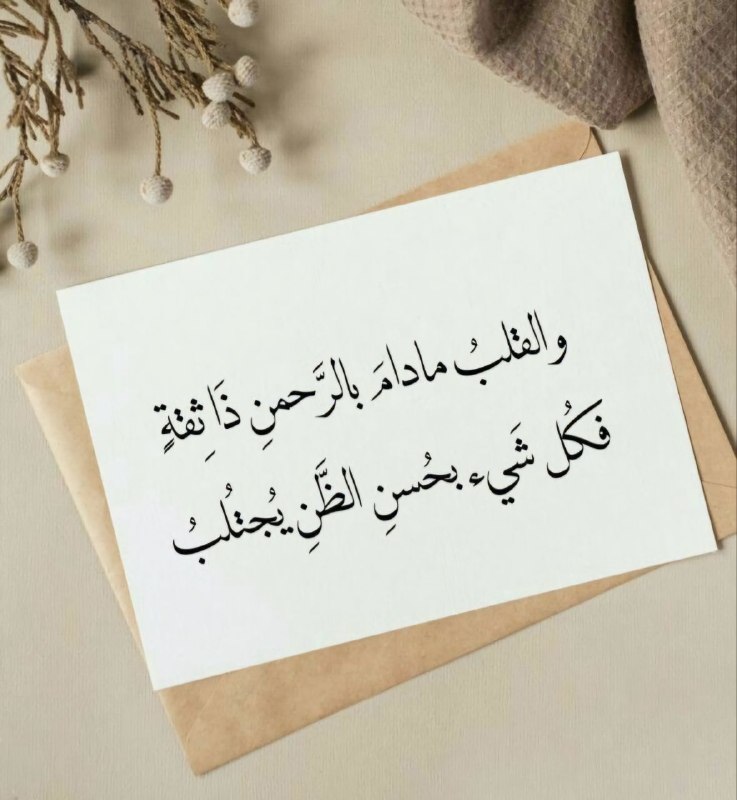 والقلبُ مادامَ بالرَّحمنِ ذَا ثِقةٍ
فكُل شَيء بحُسنِ الظَّنِ يُجتلُبُ